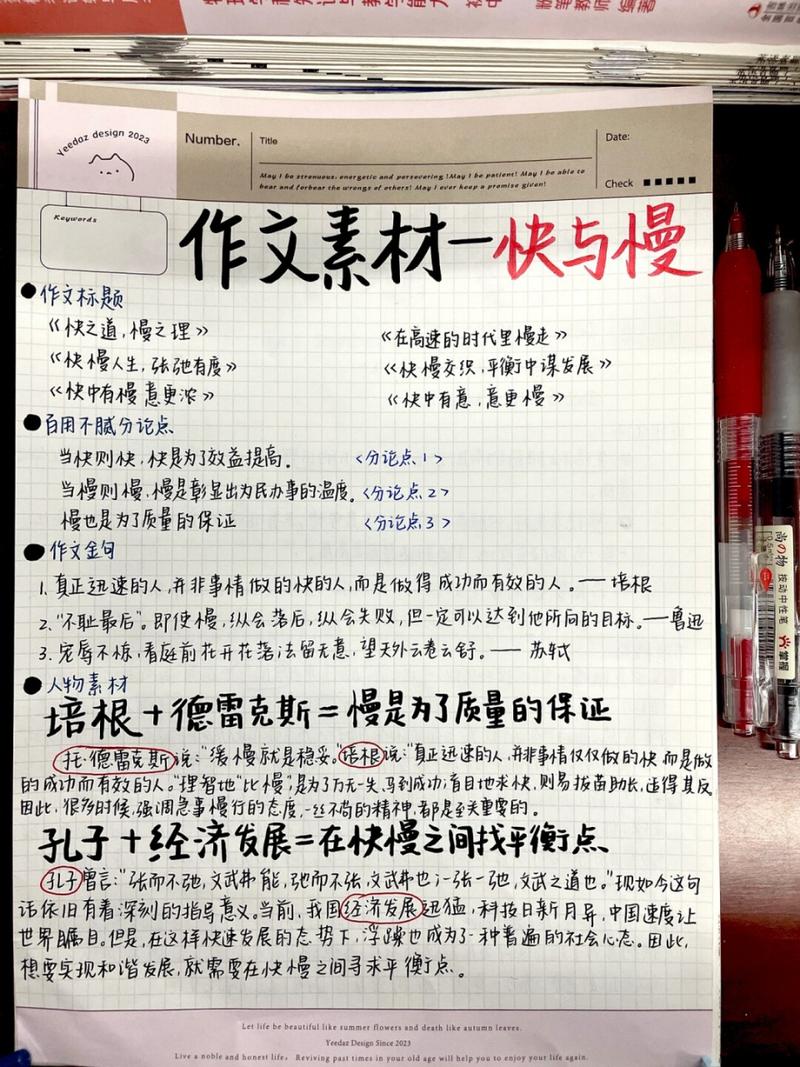 Yeedaz design 2023
Number.
Title
Date:
May I be strenuous, energetic and persevering !May I be patient! May I be able to
bear and forbear the wrongs of others! May I ever keep a promise given!
Check
Keywords
作文素材一快与慢
作文标题
《快之道,慢之理》
《在高速的时代里慢走》
《快慢人生,张弛有度》
《快慢交织,平衡中谋发展》
《快中有慢 意更浓》
《快中有意,意更慢》
百用不腻分论点
当快则快,快是为了效益提高。 <分论点1>
当慢则慢,慢是彰显出为民办事的温度。<分论点2>
慢也是为了质量的保证 <分论点3>
作文金句
1. 真正迅速的人,并非事情做的快的人,而是做得成功而有效的人。——培根
2. "不耻最后"。即使慢,纵会落后,纵会失败,但一定可以达到他所向的目标。——鲁迅
3. 宠辱不惊,看庭前花开花落;去留无意,望天外云卷云舒。—— 苏轼
人物素材
培根+德雷克斯=慢是为了质量的保证
托·德雷克斯说:"缓慢就是稳妥。"培根说:"真正迅速的人,并非事情仅仅做的快而是做
的成功而有效的人。"理智地"比慢",是为了万无一失、马到成功;盲目地求快,则易拔苗助长,适得其反
因此,很多时候,强调急事慢行的态度,一丝不苟的精神,都是至关重要的。
孔子+经济发展=在快慢之间找平衡点、
孔子曾言:"张而不弛,文武弗能,弛而不张,文武弗也;一张一弛,文武之道也。"现如今这句
话依旧有着深刻的指导意义。当前,我国经济发展迅猛,科技日新月异,中国速度让
世界瞩目。但是,在这样快速发展的态势下,浮躁也成为了一种普遍的社会心态。因此,
想要实现和谐发展,就需要在快慢之间寻求平衡点。
Let life be beautiful like summer flowers and death like autumn leaves.
Yeedaz Design Since 2023
Live a noble and honest life, Reviving past times in your old age will help you to enjoy your life again.
尚の物
按动中性笔
掌握